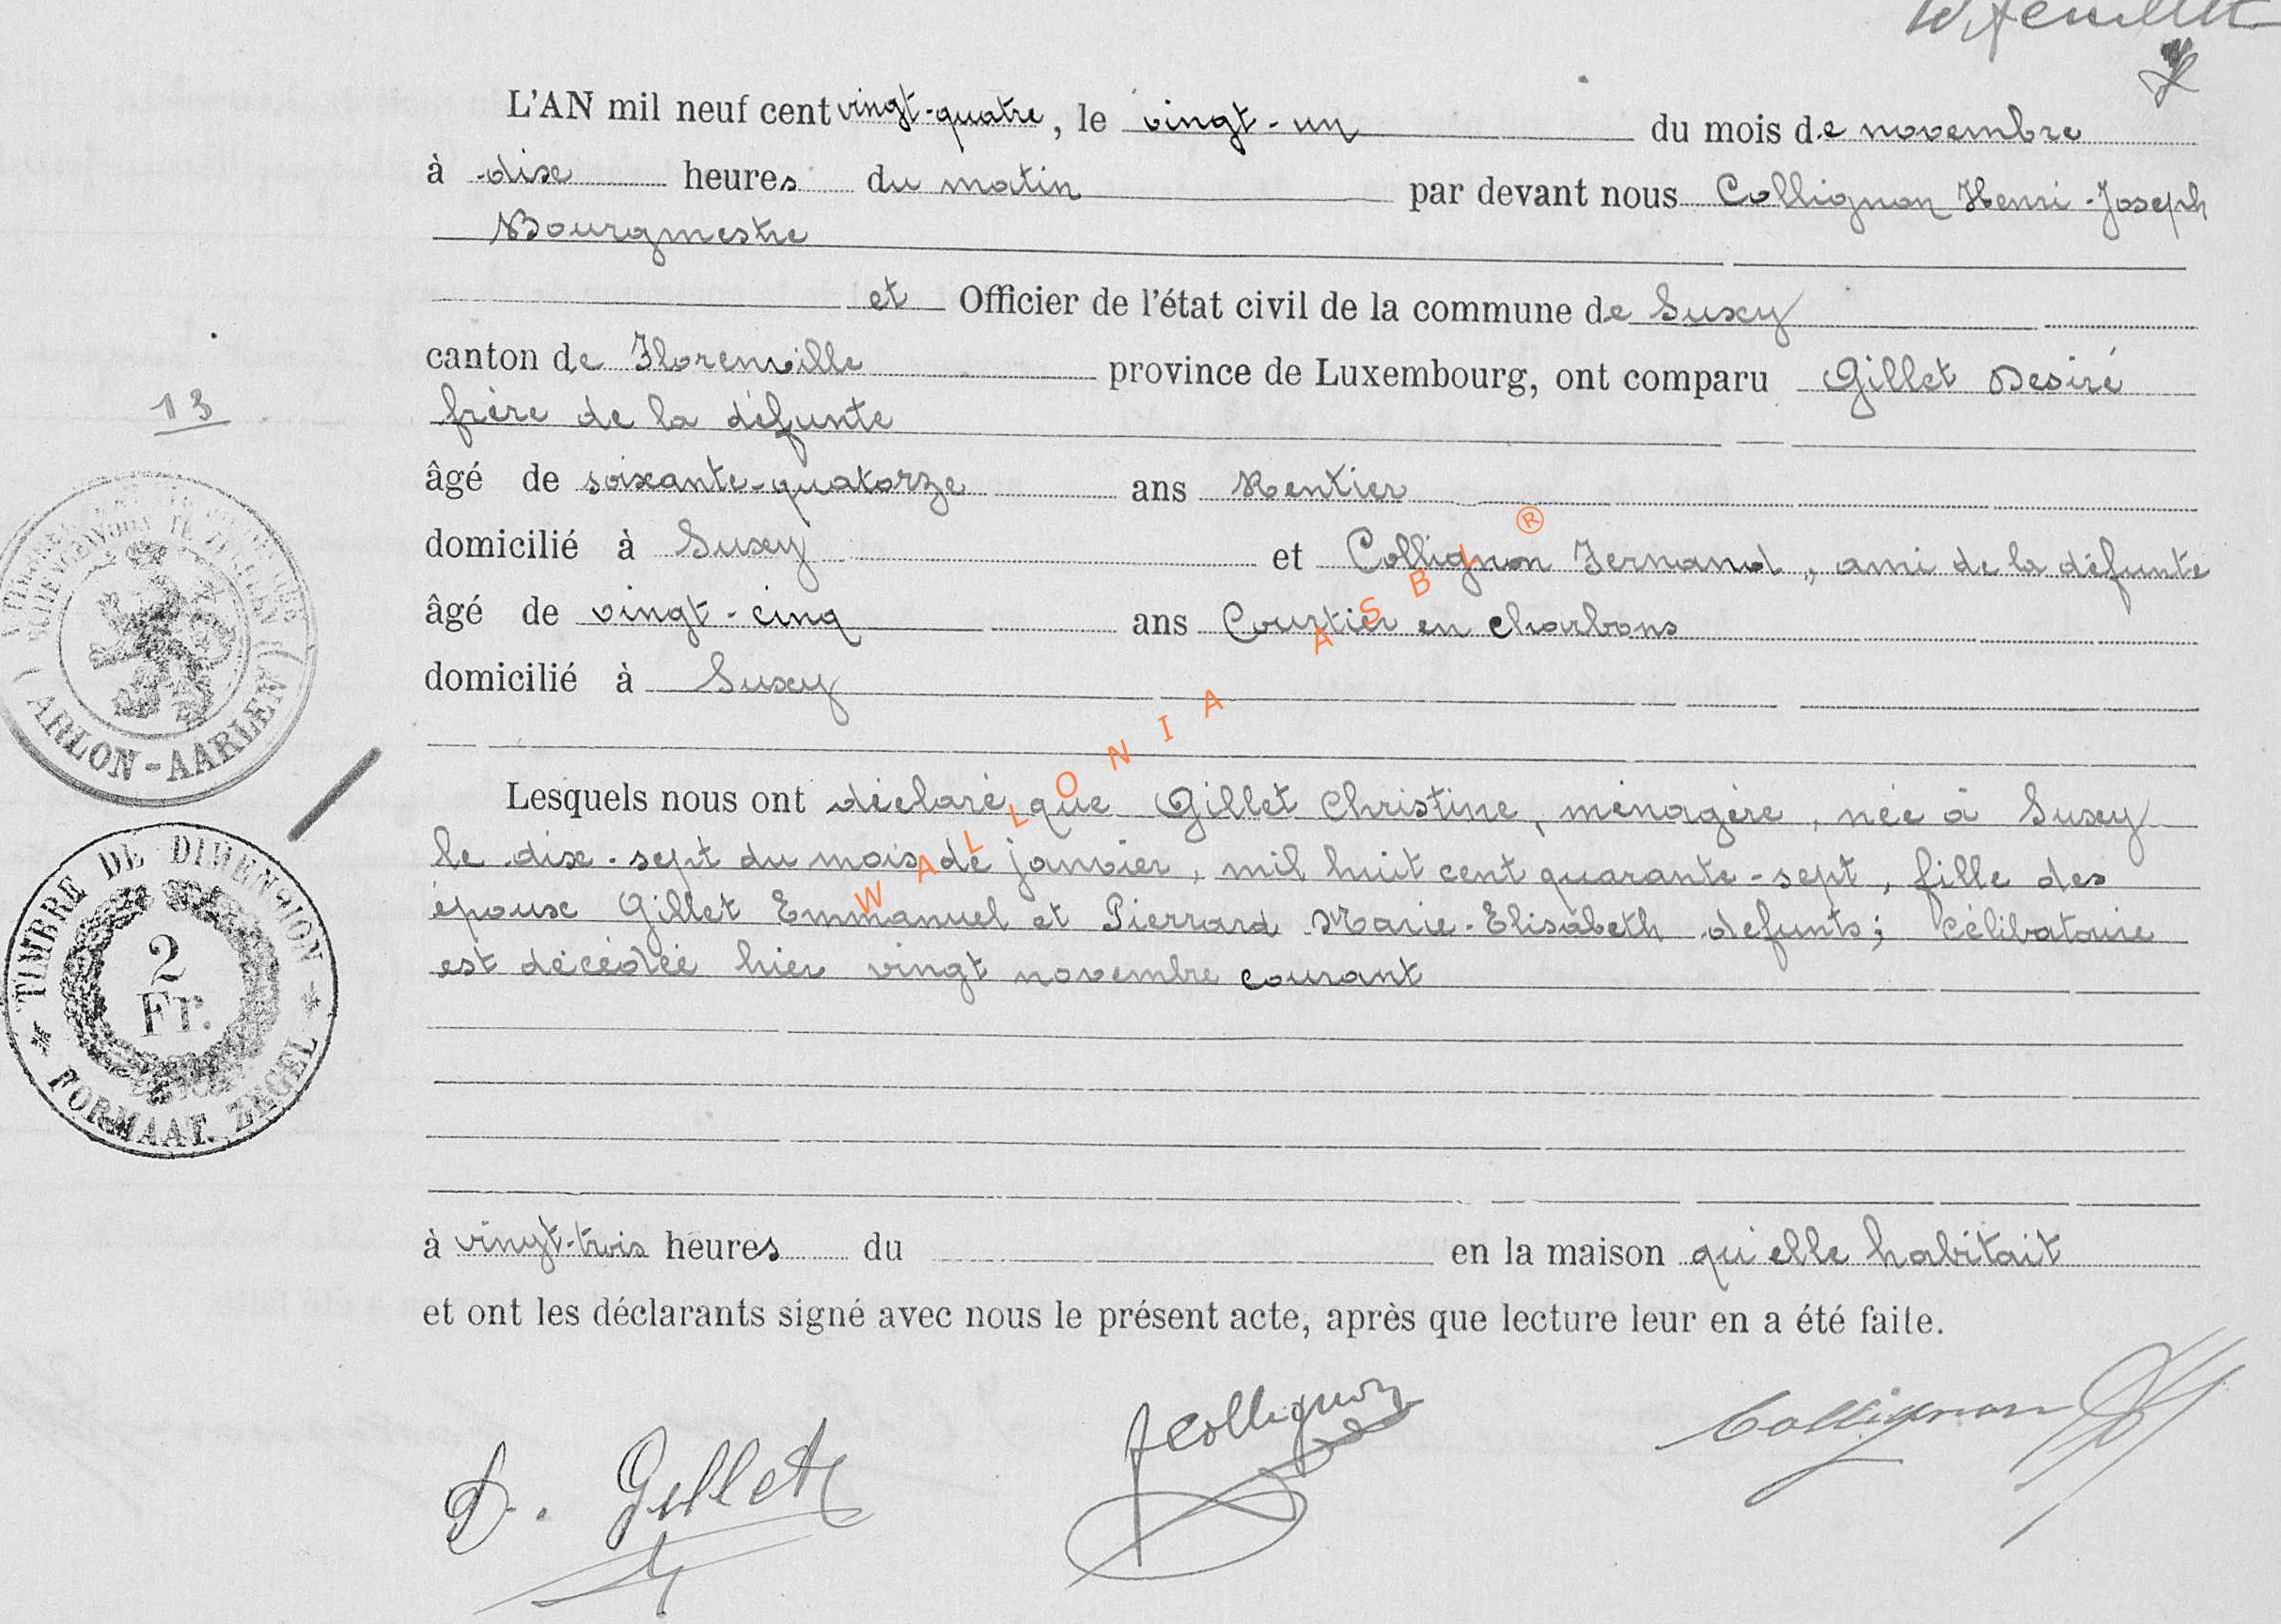 feuillet
L'AN mil neuf cent vingt-quatre, le vingt-un du mois de novembre
à dix heures du matin par devant nous Collignon Henri-Joseph
Bourgmestre
et Officier de l'état civil de la commune de Suxy
canton de Florenville province de Luxembourg, ont comparu Gillet Desiré
frère de la défunte
13
âgé de soixante-quatorze ans Rentier
domicilié à Suxy et Collignon Fernand, ami de la défunte
âgé de vingt-cinq ans Courtier en charbons
domicilié à Suxy
ARLON-AARLEN
WALLONIA ASBL ®
Lesquels nous ont déclaré que Gillet Christine, ménagère, née à Suxy
le dix-sept du mois de janvier, mil huit cent quarante-sept, fille des
époux Gillet Emmanuel et Pierrard Marie-Elisabeth defunts; célibataire
est décédée hier vingt novembre courant
TIMBRE DE DIMENSION
2
Fr.
* FORMAAT. ZEGEL *
à vingt-trois heures du en la maison qu'elle habitait
et ont les déclarants signé avec nous le présent acte, après que lecture leur en a été faite.
D. Gillet FCollignon Collignon